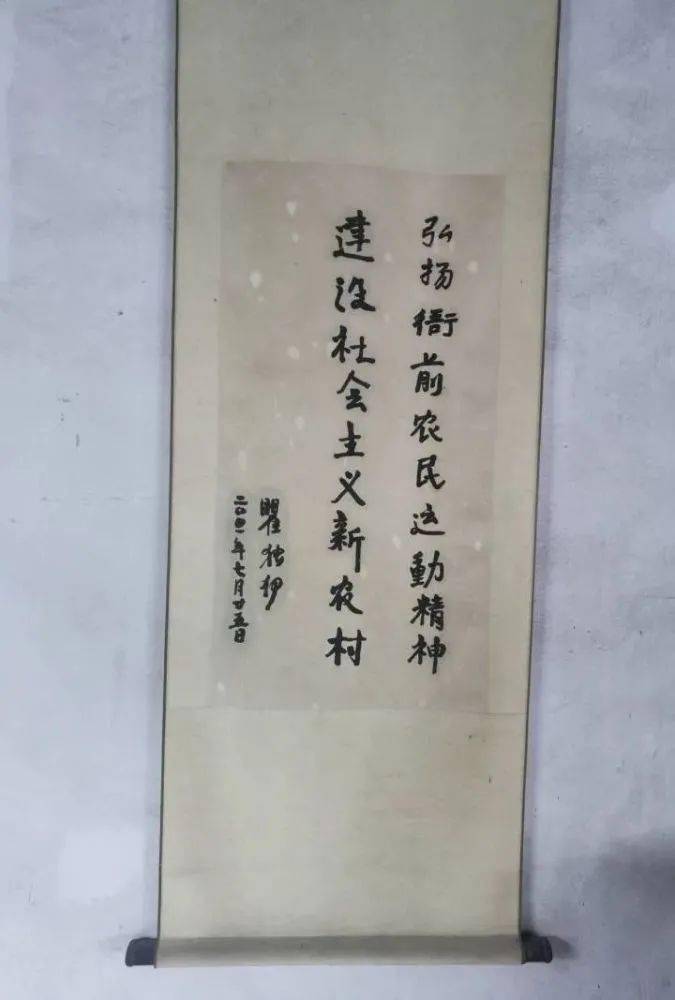 弘扬衙前农民运動精神
建设社会主义新农村
瞿独伊
二〇〇一年七月廿五日